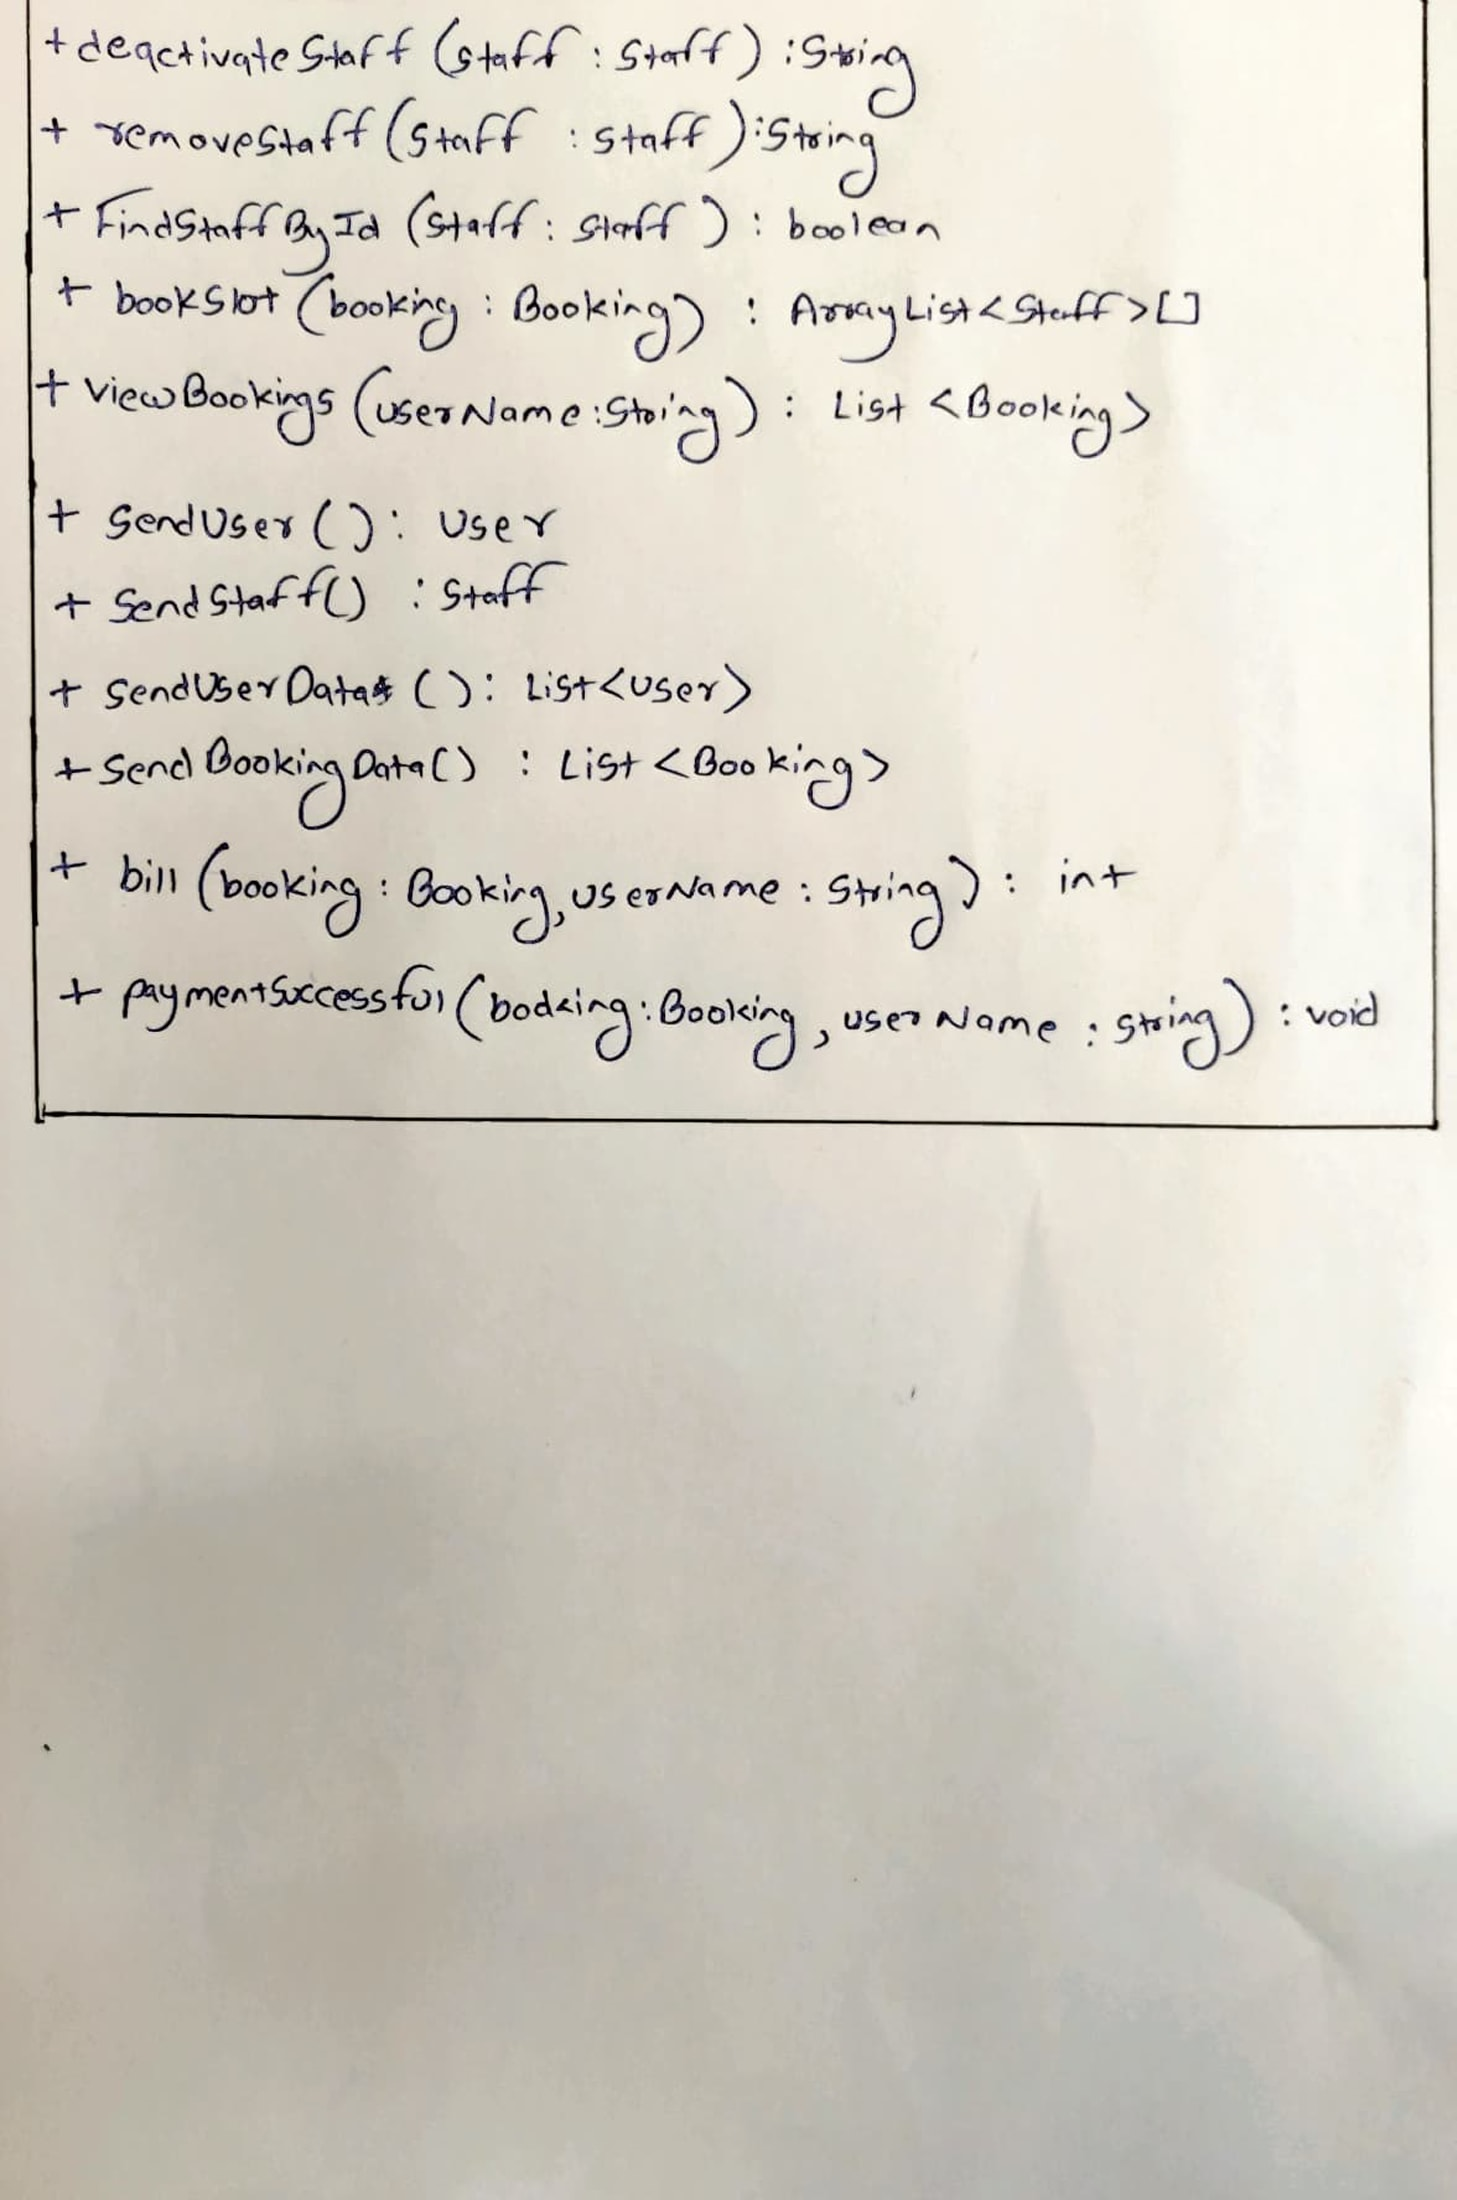 + deactivateStaff (staff : Staff) : String
+ removeStaff (Staff : staff) : String
+ FindStaffById (Staff : Staff) : boolean
+ bookSlot (booking : Booking) : ArrayList<Staff>[]
+ viewBookings (userName : String) : List <Booking>
+ SendUser () : User
+ SendStaff() : Staff
+ SendUserData () : List<User>
+ Send BookingData() : List <Booking>
+ bill (booking : Booking, userName : String) : int
+ paymentSuccessful (booking : Booking, userName : String) : void